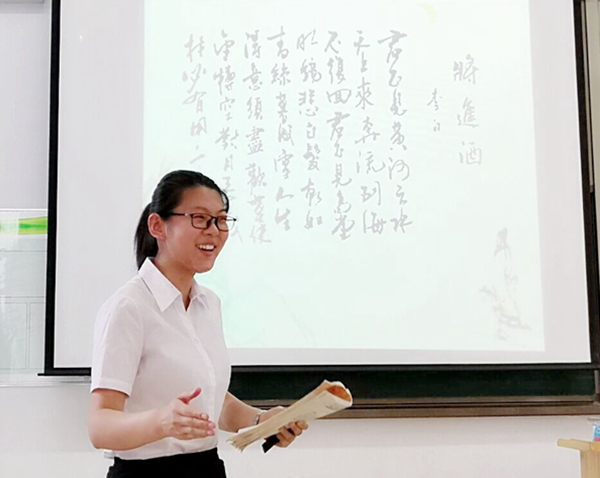 將進酒
李白
君不見黃河之水
天上來奔流到海
不復回君不見高堂
明鏡悲白髮朝如
青絲暮成雪人生
得意須盡歡莫使
金樽空對月天
材必有用